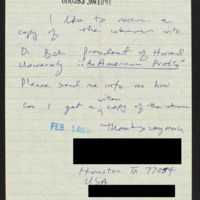 000283 JAN1091
I like to receive a
copy of the interview with
Dr. Bok president of Harvard
University "An American Profile"
Please send me info. on how
can I get a written copy of the interview
FEB 5
Thanks very much
Houston Tx 77054
USA